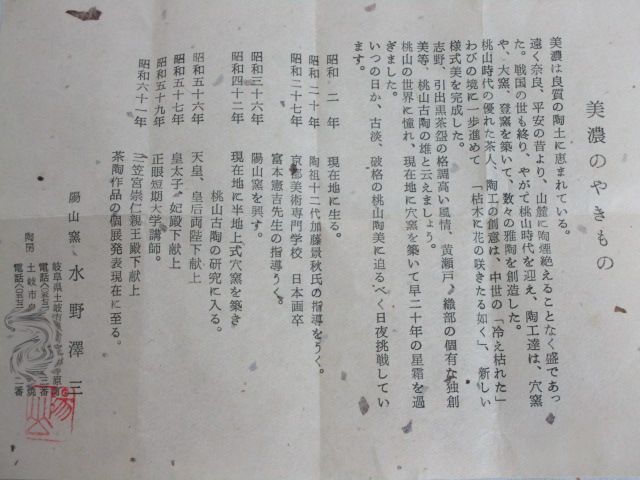 美濃のやきもの
美濃は良質の陶土に恵まれている。
遠く奈良、平安の昔より、山麓に陶煙絶えることなく盛であっ
た。戦国の世も終り、やがて桃山時代を迎え、陶工達は、穴窯
や、大窯、登窯を築いて、数々の雅陶を創造した。
桃山時代の優れた茶人、陶工の創意は、中世の「冷え枯れた」
わびの境に一歩進めて「枯木に花の咲きたる如く」、新しい
様式美を完成した。
志野、引出黒茶盌の格調高い風情、黄瀬戸、織部の個有な独創
美等、桃山古陶の雄と云えましょう。
桃山の世界に憧れ、現在地に穴窯を築いて早二十年の星霜を過
ぎました。
いつの日か、古淡、破格の桃山陶美に迫るべく日夜挑戦してい
ます。
昭和 二 年 現在地に生る。
昭和 二十年 陶祖十二代加藤景秋氏の指導をうく。
昭和二十七年 京都美術専門学校 日本画卒
富本憲吉先生の指導うく。
昭和三十六年 陽山窯を興す。
昭和四十二年 現在地に半地上式穴窯を築き
桃山古陶の研究に入る。
昭和五十六年 天皇、皇后両陛下献上
昭和五十七年 皇太子、妃殿下献上
昭和五十九年 正眼短期大学講師。
昭和六十一年 三笠宮崇仁親王殿下献上
茶陶作品の個展発表現在に至る。
陽山窯 水野澤三
岐阜県土岐市
電話
陶房 土岐市
電話